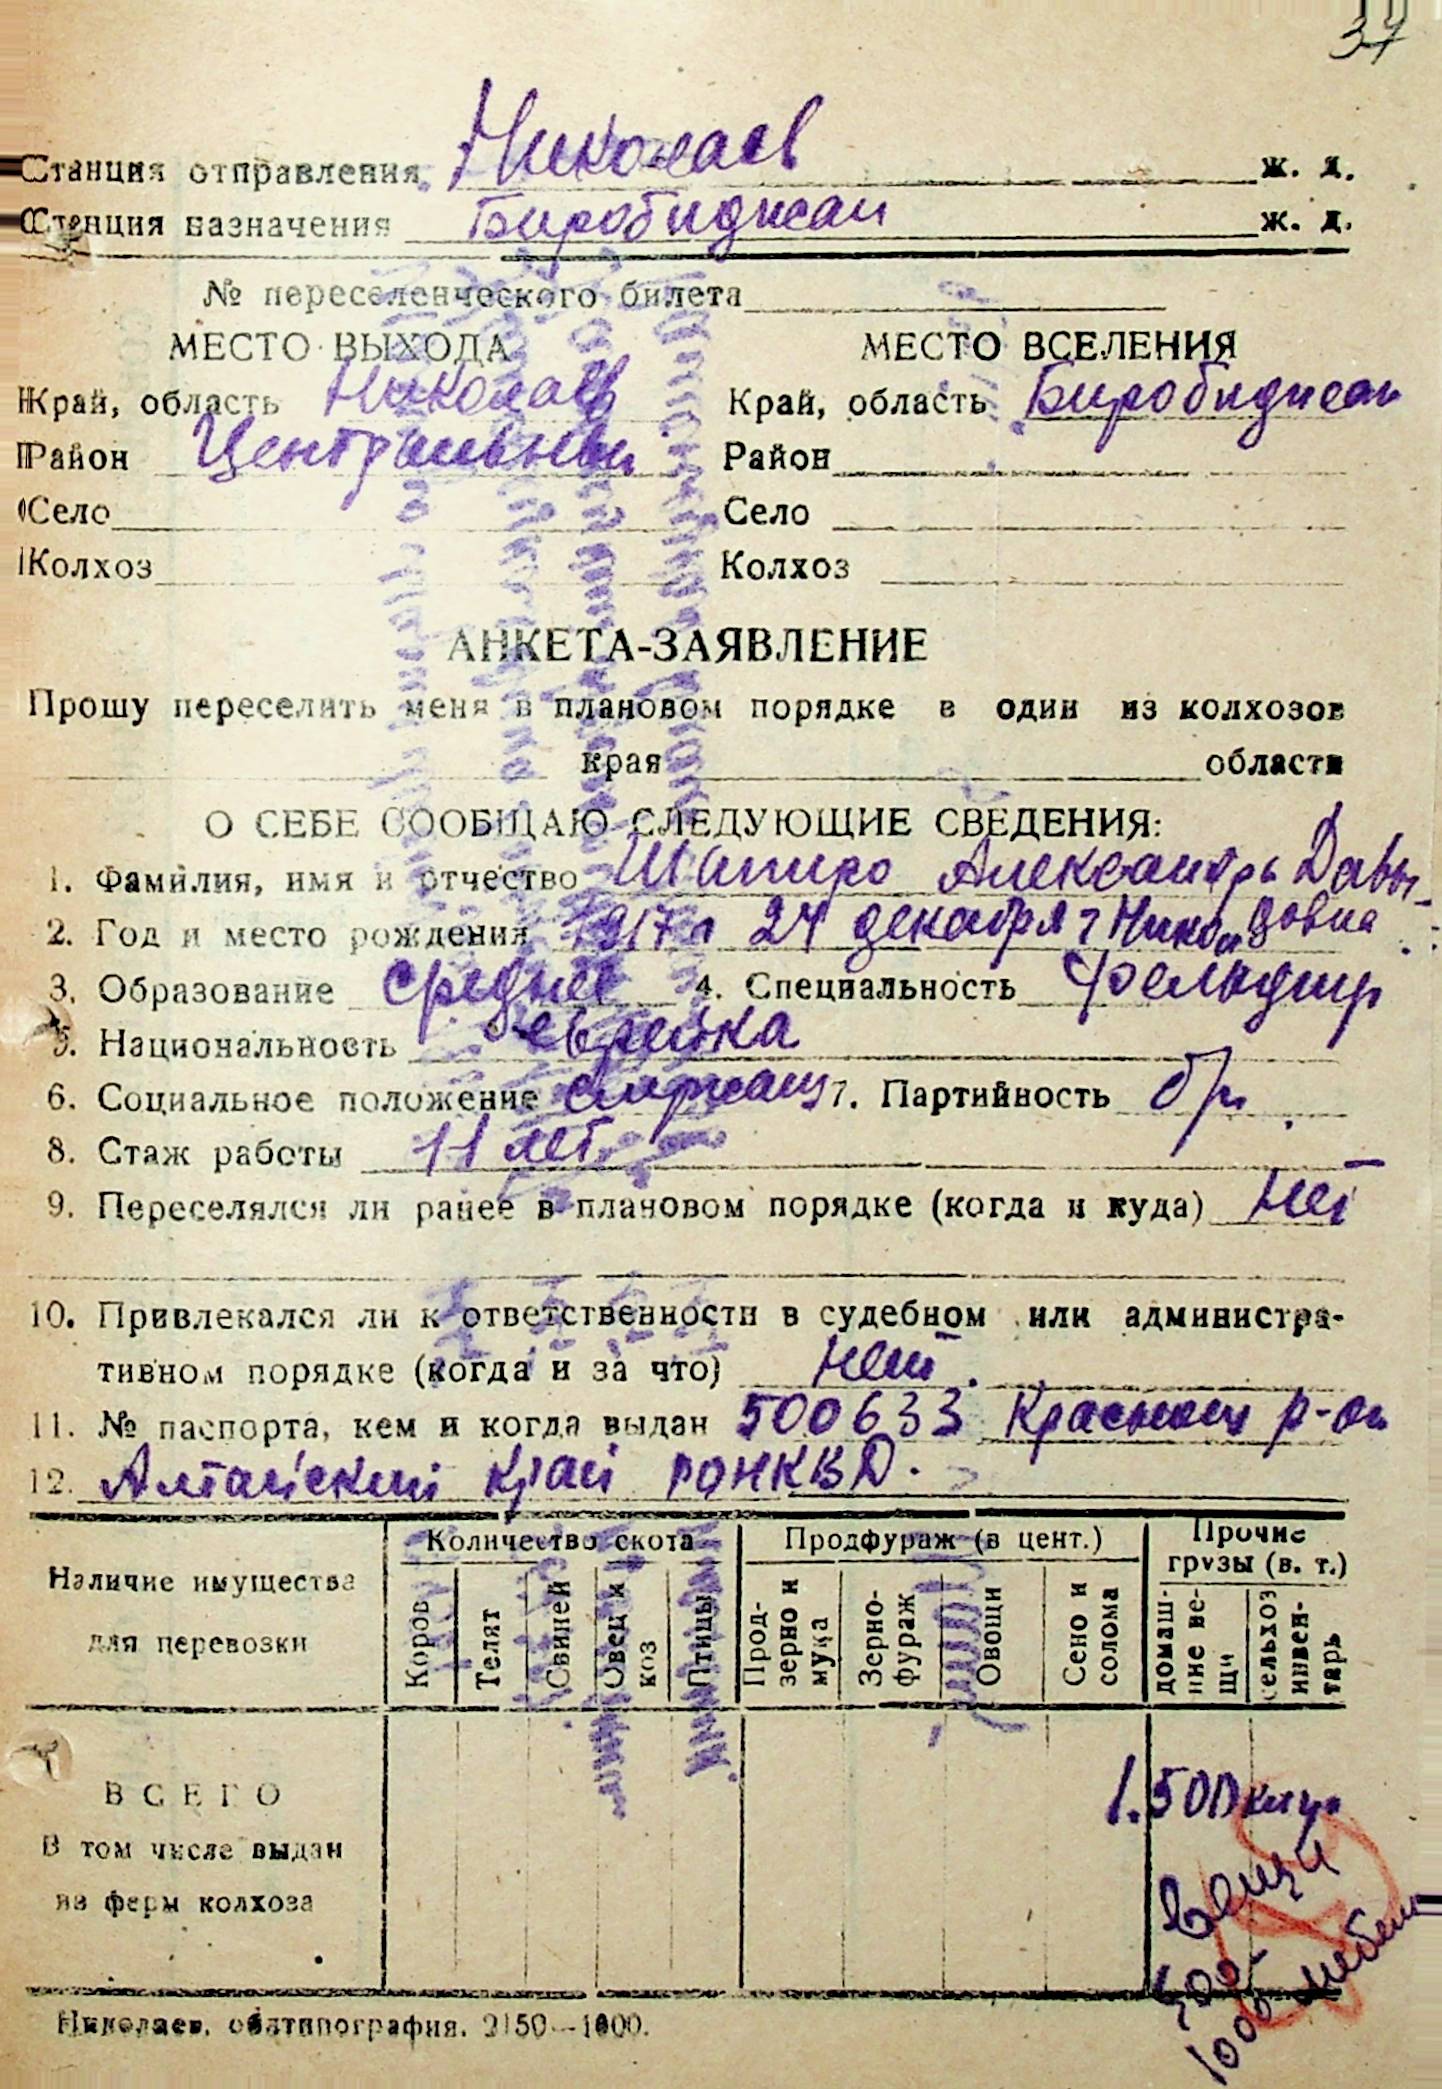 37
Станция отправления Николаев ж. д.
Станция назначения Биробиджан ж. д.
№ переселенческого билета
МЕСТО ВЫХОДА МЕСТО ВСЕЛЕНИЯ
Край, область Николаев Край, область Биробиджан
Район Центральный Район
Село Село
Колхоз Колхоз
АНКЕТА-ЗАЯВЛЕНИЕ
Прошу переселить меня в плановом порядке в один из колхозов
края области
О СЕБЕ СООБЩАЮ СЛЕДУЮЩИЕ СВЕДЕНИЯ:
1. Фамилия, имя и отчество Шапиро Александра Давы-
довна
2. Год и место рождения 1917 г 24 декабря г Никол
3. Образование среднее 4. Специальность Фельдшер
5. Национальность еврейка
6. Социальное положение служащ 7. Партийность б/п.
8. Стаж работы 11 лет.
9. Переселялся ли ранее в плановом порядке (когда и куда) Нет
10. Привлекался ли к ответственности в судебном или администра-
тивном порядке (когда и за что) нет.
11. № паспорта, кем и когда выдан 500633 р-он
12. Алтайский край РОНКВД.
Наличие имущества для перевозки
Количество скота Продфураж (в цент.) Прочие грузы (в. т.)
Коров Телят Свиней Овец и коз Птицы Прод-зерно и мука Зерно-фураж Овощи Сено и солома домаш-ние ве-щи сельхоз инвен-тарь
ВСЕГО
1.500 кигр
В том числе выдан
из ферм колхоза
вещи
500-
1000 мебель
Николаев, облтипография. 2150—1000.